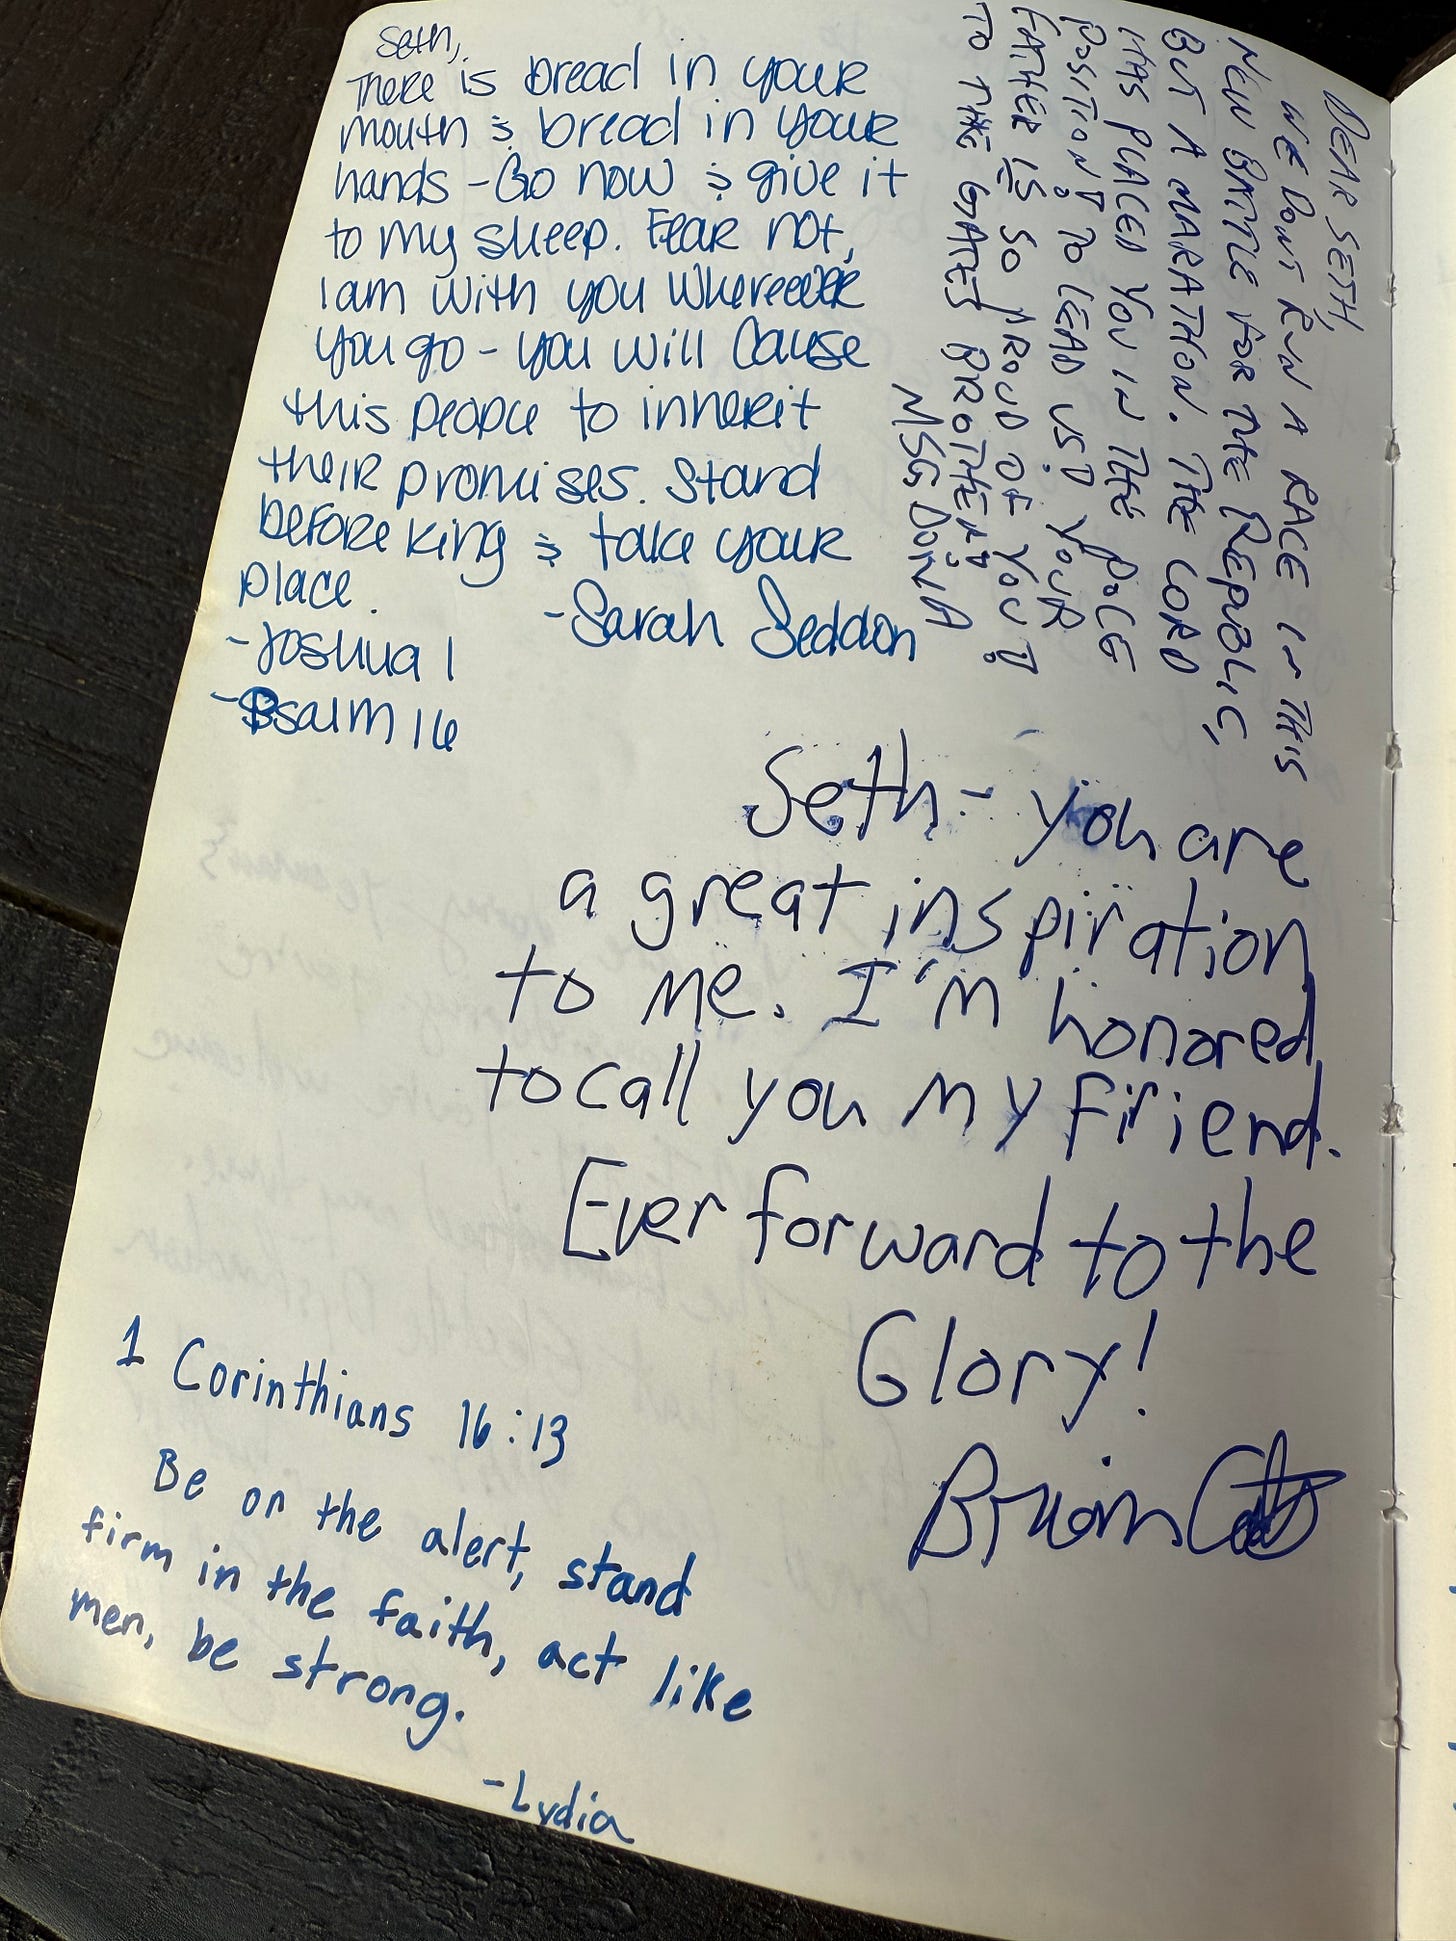 Seth,
There is bread in your
mouth & bread in your
hands - Go now & give it
to my sheep. Fear not,
I am with you whereever
you go - you will cause
this people to inherit
their promises. Stand
before king & take your
place.
- Joshua 1
- Psalm 16
- Sarah Seddon
DEAR SETH,
WE DONT RUN A RACE IN THIS
NEW BATTLE FOR THE REPUBLIC,
BUT A MARATHON. THE LORD
HAS PLACED YOU IN THE POLE
POSITION! TO LEAD US! YOUR
FATHER IS SO PROUD OF YOU!
TO THE GATES BROTHER!
MSG DOÑA
Seth - you are
a great inspiration
to me. I'm honored
to call you my friend.
Ever forward to the
Glory!
Brian
1 Corinthians 16:13
Be on the alert, stand
firm in the faith, act like
men, be strong.
- Lydia